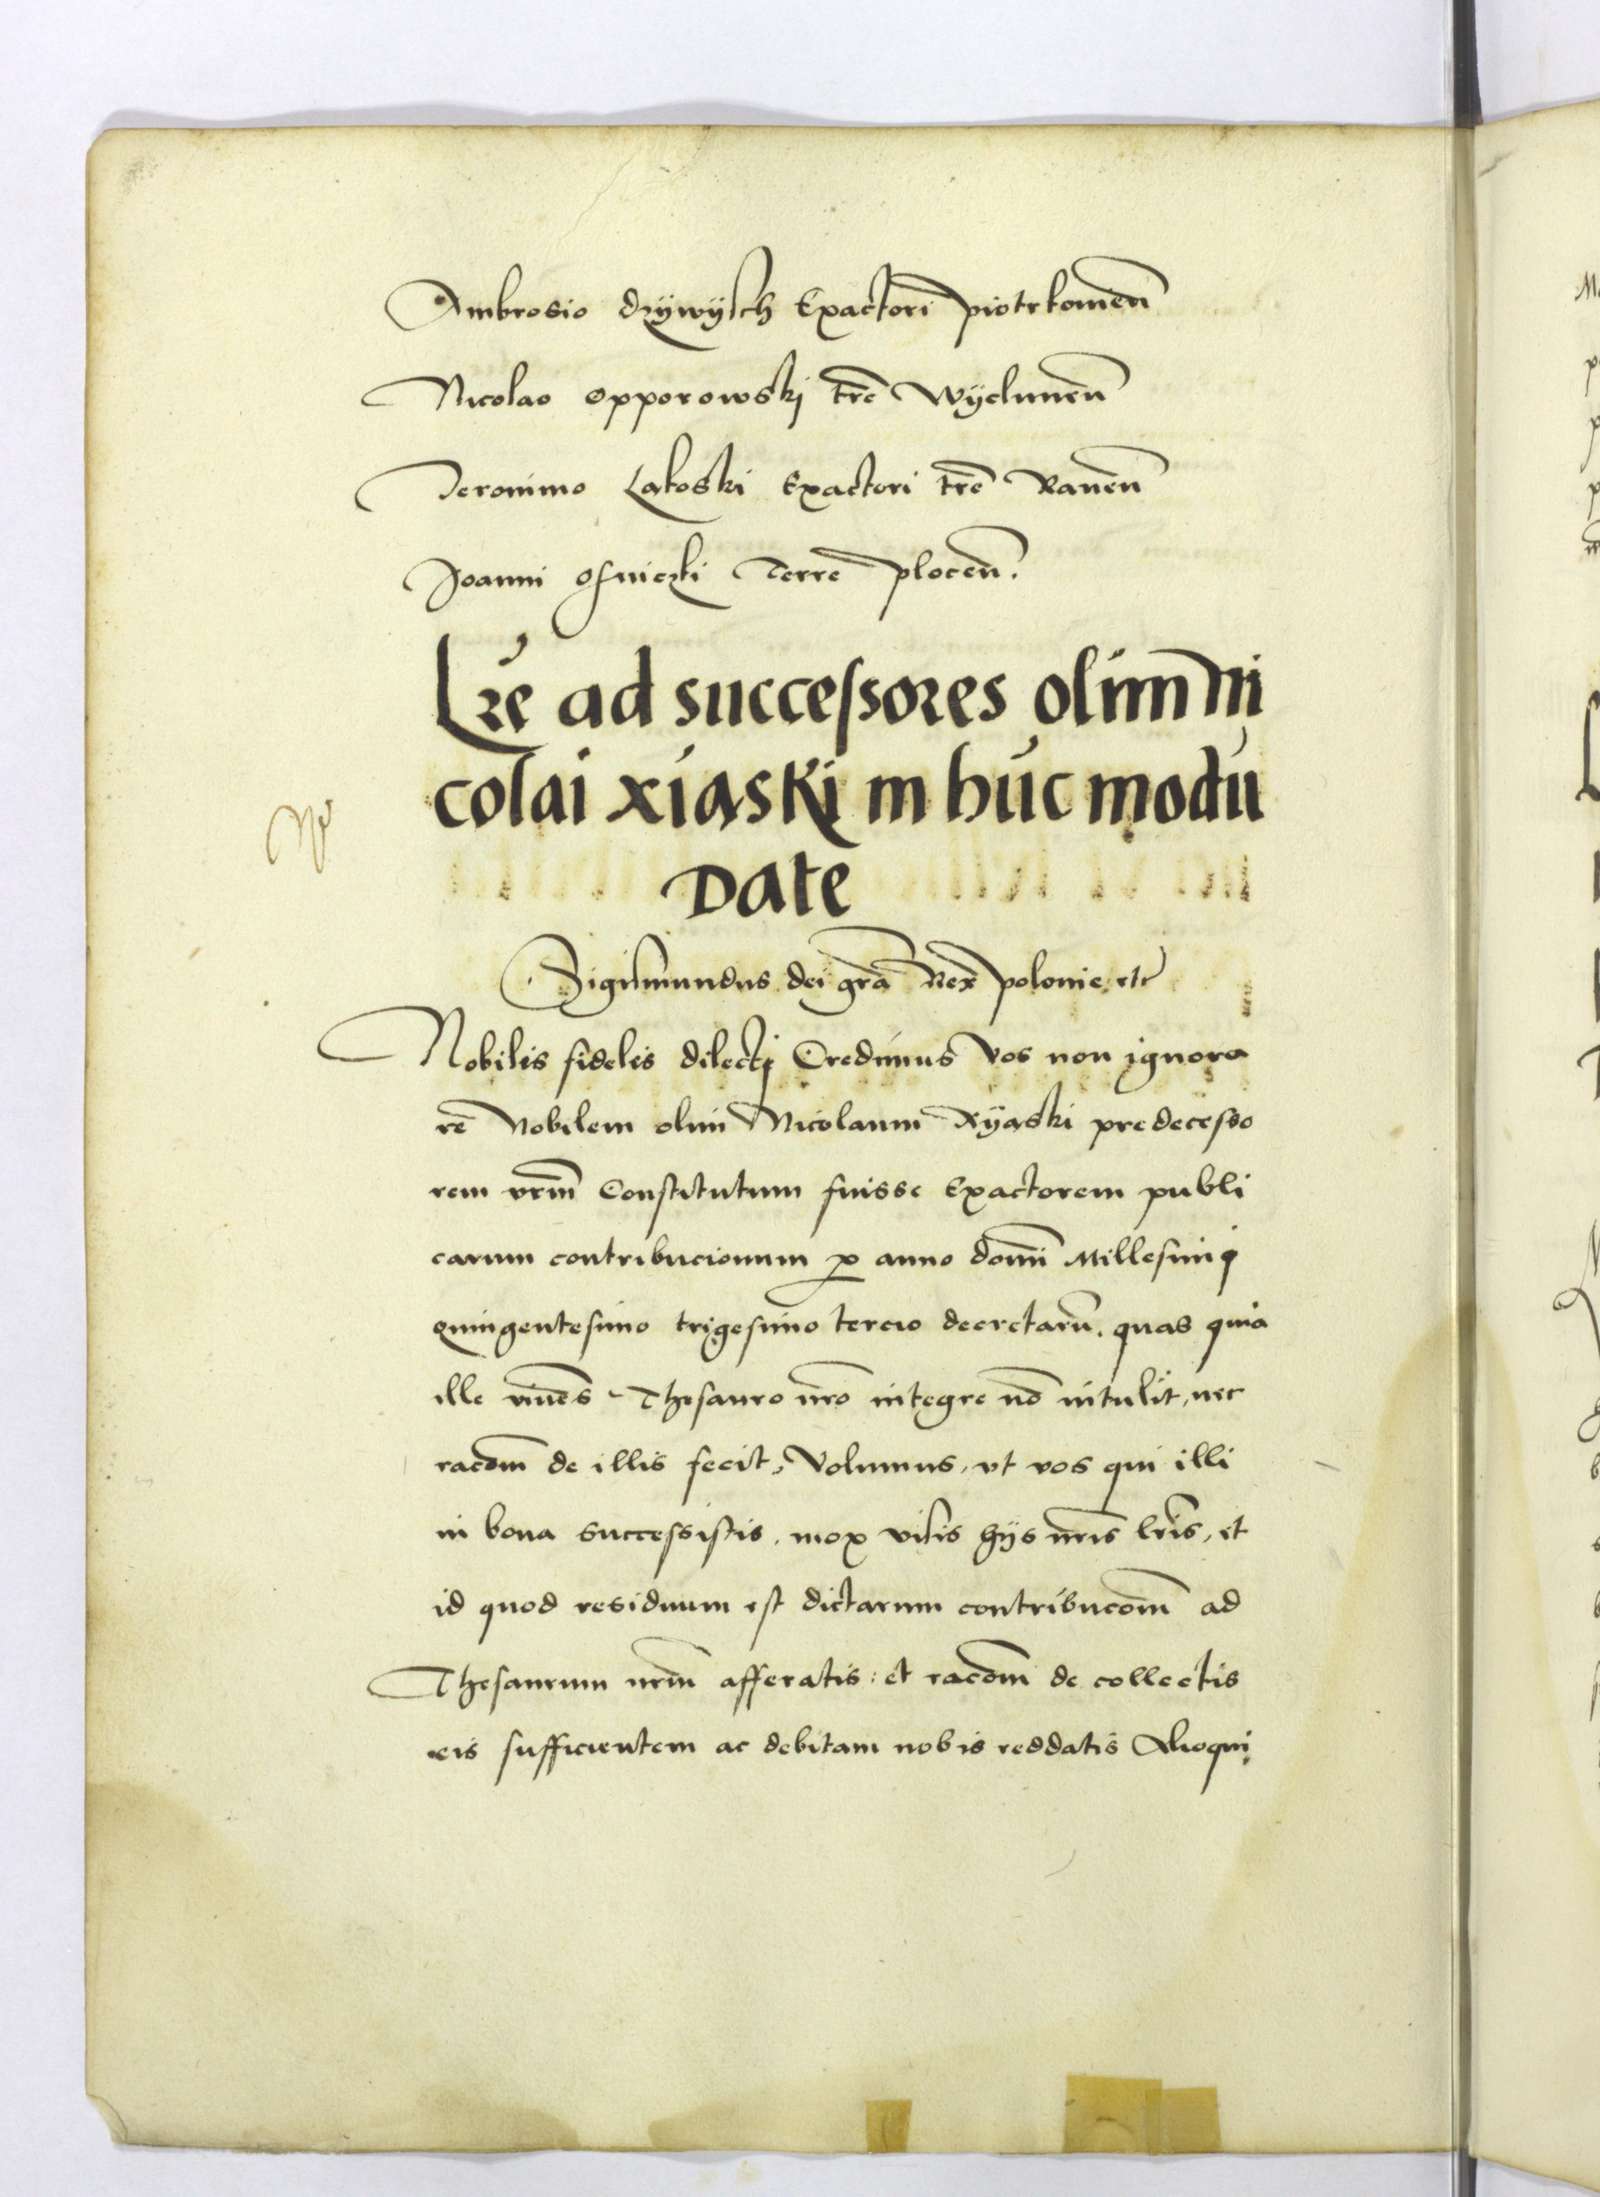 Ambrosio drÿwÿsch Exactori piotrkouien̄
Nicolao opporowskj trē Wÿelunen̄
Jeronimo Lakoski Exactori trē Rauen̄
Joanni osniczki Terre plocen̄.
Lr̄e ad successores olim ni
colai xiaski in hūc modū
Date
Sigismundus dei gr̄a Rex polonie etc
Nobilis fidelis dilectj Credimus Vos non ignora
re Nobilem olim Nicolaum Xÿaski predecesso
rem vr̄m Constitutum fuisse Exactorem publi
carum contribucionum ꝓ anno dom̄i Millesimo
quingentesimo trigesimo tercio decretarū. quas quia
ille viuēs Thesauro nr̄o integre nō intulit, nec
racōm̄ de illis fecit, Volumus, vt vos qui illi
in bona successistis, mox visis hÿs nr̄is lr̄is, et
id quod residuum est dictarum contribucōm̄ ad
Thesaurum nr̄m afferatis: et racōm̄ de collectis
eis sufficientem ac debitam nobis reddatis Alioqui